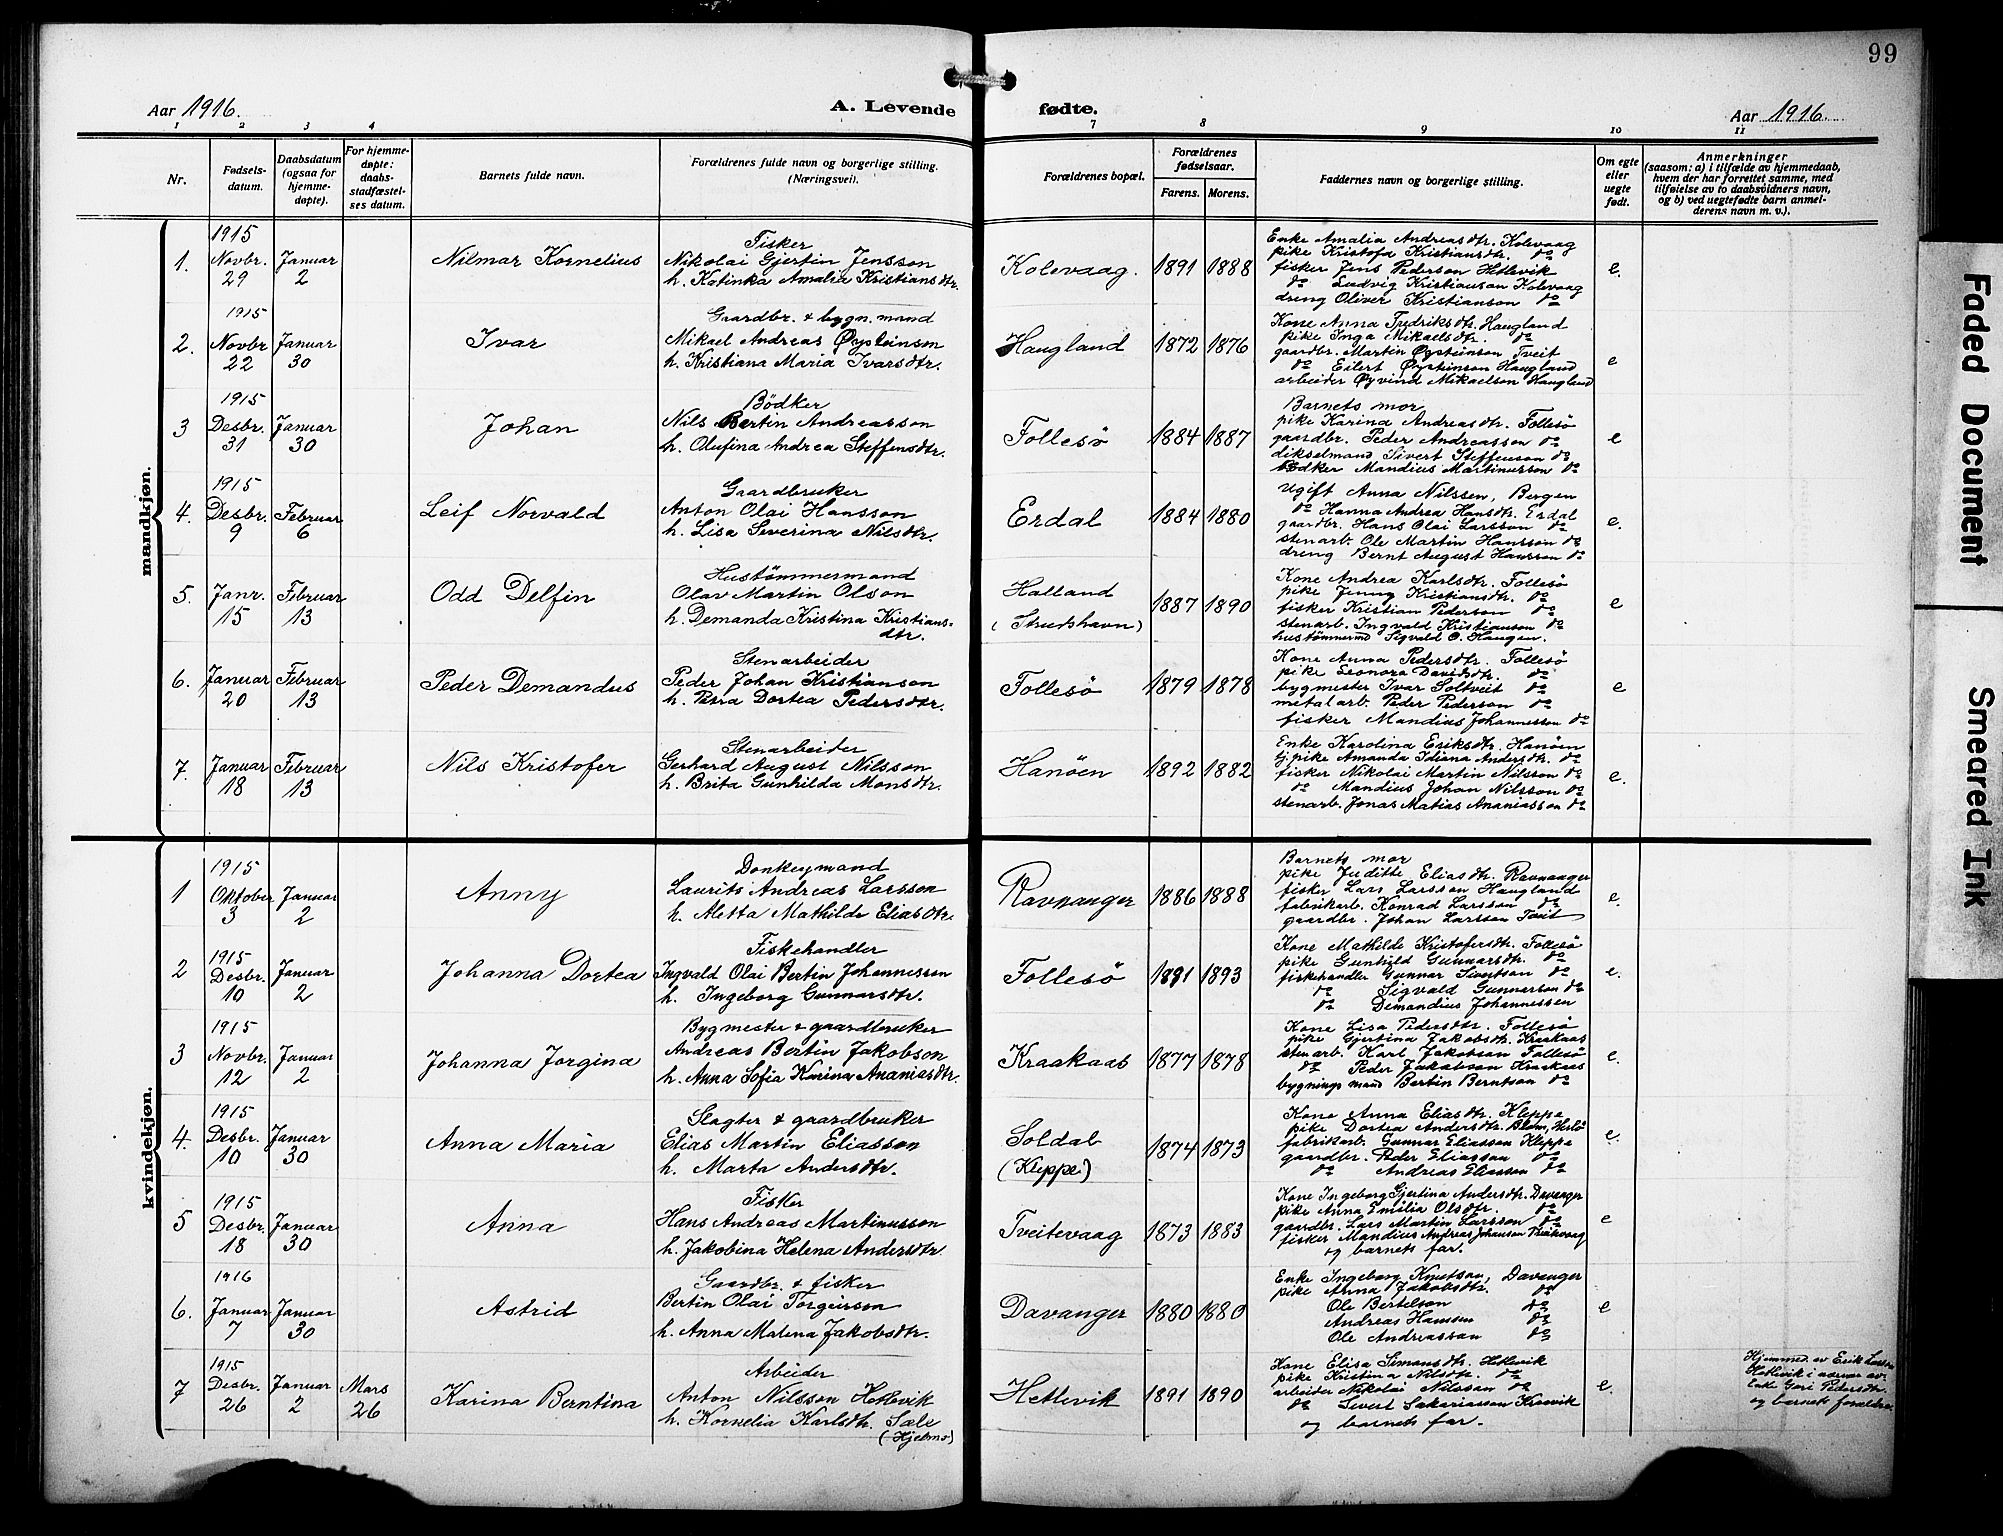 99
Aar 1916.
A. Levende fødte.
Aar 1916.
1 2 3 4 7 8 9 10 11
Nr.
Fødsels-
datum.
Daabsdatum
(ogsaa for
hjemme-
døpte).
For hjemme-
døpte:
daabs-
stadfæstel-
ses datum.
Barnets fulde navn.
Forældrenes fulde navn og borgerlige stilling.
(Næringsvei).
Forældrenes bopæl.
Forældrenes
fødselsaar.
Farens. Morens.
Faddernes navn og borgerlige stilling.
Om egte
eller
uegte
født.
Anmerkninger
(saasom: a) i tilfælde av hjemmedaab,
hvem der har forrettet samme, med
tilføielse av to daabsvidners navn,
og b) ved uegtefødte barn anmel-
derens navn m. v.).
mandkjøn.
1.
1915
Novbr.
29
Januar
2
Nilmar Kornelius
Fisker
Nikolai Gjertin Jensson
h. Katinka Amalia Kristiansdtr.
Kolevaag.
1891 1888
Enke Amalia Andreasdtr. Kolevaag
pike Kristofa Kristiansdtr. do
fisker Jens Pederson Hetlevik
do Ludvig Kristianson Kolevaag
dreng Oliver Kristianson do
e.
2.
1915
Novbr
22
Januar
30
Ivar
Gaardbr. & bygn. mand
Mikael Andreas Øysteinson
h. Kristiana Maria Ivarsdtr.
Haugland
1872 1876
Kone Anna Fredriksdtr. Haugland
pike Inga Mikaelsdtr. do
gaardbr. Martin Øysteinson Tveit
do Eilert Øysteinson Haugland
arbeider Øyvind Mikaelson Haugland
e
3
1915
Desbr.
31
Januar
30
Johan
Bödker
Nils Bertin Andreasson
h. Olufina Andrea Steffensdtr.
Follesö
1884 1887
Barnets mor
pike Karina Andreasdtr. Follesö
gaardbr. Peder Andreasson do
dikselmand Sivert Steffenson do
bödker Mandius Martinusson do
e
4.
1915
Desbr.
9
Februar
6
Leif Norvald
Gaardbruker
Anton Olai Hansson
h. Lisa Severina Nilsdtr.
Erdal
1884 1880
Ugift Anna Nilssen, Bergen
do Hanna Andrea Hansdtr. Erdal
gaardbr. Hans Olai Larsson do
stenarb. Ole Martin Hansson do
dreng Bernt August Hansson do
e.
5.
Janr.
15
Februar
13
Odd Delfin
Hustømmermand
Olav Martin Olson
h. Demanda Kristina Kristians-
dtr.
Halland
(Strudshavn)
1887 1890
Kone Andrea Karlsdtr. Follesö
pike Jenny Kristiansdtr. do
fisker Kristian Pederson do
stenarb. Ingvald Kristianson do
hustømmermd Sigvald O. Haugen.
e
6.
Januar
20
Februar
13
Peder Demandus
Stenarbeider
Peder Johan Kristianson
h. Petra Dortea Pedersdtr.
Follesö
1879 1878
Kone Anna Pedersdtr. Follesö
pike Leonora Davidsdtr. do
bygmester Ivar Soltveit do
metalarb. Peder Pederson do
fisker Mandius Johannesson do
e
7.
Januar
18
Februar
13
Nils Kristofer
Stenarbeider
Gerhard August Nilsson
h. Brita Gunhilda Monsdtr.
Hanöen
1892 1882
Enke Karolina Eriksdtr. Hanöen
tj.pike Amanda Idiana Andersdtr. do
fisker Nikolai Martin Nilsson do
do Mandius Johan Nilsson do
stenarb. Jonas Matias Ananiasson do
e.
kvindekjøn.
1
1915
Oktober
3
Januar
2
Anny
Donkeymand
Laurits Andreas Larsson
h. Aletta Mathilde Eliasdtr.
Ravnanger
1886 1888
Barnets mor
pike Juditte Eliasdtr. Ravnanger
fisker Lars Larsson Haugland
fabrikarb. Konrad Larsson do
gaardbr. Johan Larsson Tveit
e.
2
1915
Desbr.
10
Januar
2
Johanna Dortea
Fiskehandler
Ingvald Olai Bertin Johannesson
h. Ingeborg Gunnarsdtr.
Follesö
1891 1893
Kone Mathilde Kristofersdtr. Follesö
pike Gunhild Gunnarsdtr. do
fiskehandler Gunnar Sivertson do
do Sigvald Gunnarson do
do Demandius Johannessen
e.
3
1915
Novbr.
12
Januar
2
Johanna Jorgina
Bygmester & gaardbruker
Andreas Bertin Jakobson
h. Anna Sofia Karina Ananiasdtr.
Kraakaas
1877 1878
Kone Lisa Pedersdtr. Follesö
pike Gjertina Jakobsdtr. Kraakaas
stenarb. Karl Jakobson Follesö
do Peder Jakobson Kraakaas
bygningsmand Bertin Berntson do
e.
4.
1915
Desbr.
10
Januar
30
Anna Maria
Slagter & gaardbruker
Elias Martin Eliasson
h. Marta Andersdtr.
Soldal
(Kleppe)
1874 1873
Kone Anna Eliasdtr. Kleppe
pike Dortea Andersdtr. Blom, Herlö
fabrikarb. Gunnar Eliasson Kleppe
gaardbr. Peder Eliasson do
do Andreas Eliasson do
e.
5
1915
Desbr.
18
Januar
30
Anna
Fisker
Hans Andreas Martinusson
h. Jakobina Helena Andersdtr.
Tveitevaag
1873 1883
Kone Ingeborg Gjertina Andersdtr. Davanger
pike Anna Emilia Olsdtr. do
gaardbr. Lars Martin Larsson do
fisker Mandius Andreas Johanson Tveitevaag
og barnets far.
e
6.
1916
Januar
7
Januar
30
Astrid
Gaardbr. & fisker
Bertin Olai Torgeirson
h. Anna Malena Jakobsdtr.
Davanger
1880 1880
Enke Ingeborg Knutson, Davanger
pike Anna Jakobsdtr. do
Ole Bertelson do
Andreas Hansen do
Ole Andreasson do
e
7
1915
Desbr.
26
Januar
2
Mars
26
Karina Berntina
Arbeider
Anton Nilsson Hetlevik
h. Kornelia Karlsdtr. Sæle
(Hjelmo)
Hetlevik
1891 1890
Kone Elisa Simonsdtr. Hetlevik
pike Kristina Nilsdtr. do
arbeider Nikolai Nilsson do
do Sivert Sakariasson
og barnets far.
e.
Hjemmed. av Erik Larsson
Hetlevik i nærvær av
Enke Gori Pedersdtr.
og barnets forældre
Faded Document
Smeared Ink